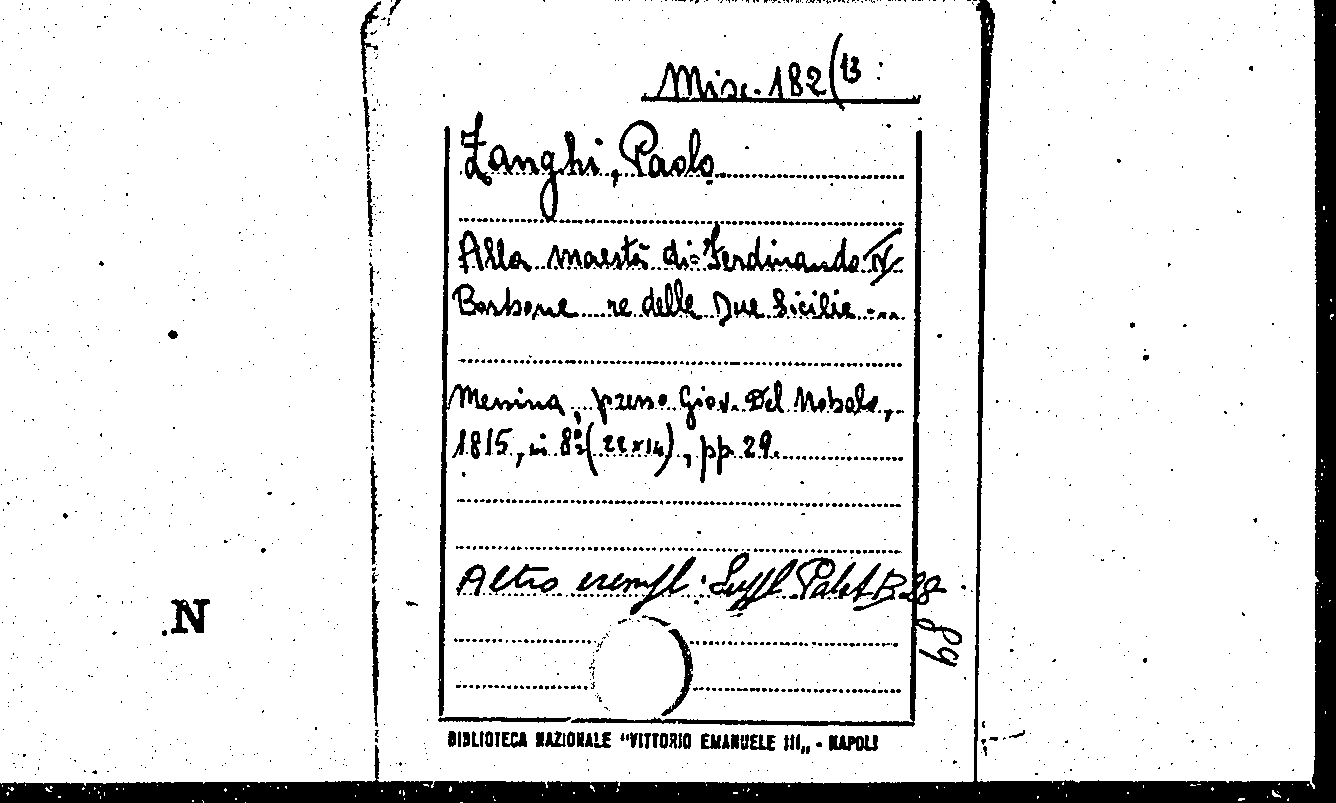 Misc. 182(13
Zanghi, Paolo
Alla maestà di Ferdinando IV
Borbone re delle Due Sicilie ...
Messina, presso Giov. Del Nobolo,
1815, in 8º (22x14), pp. 29.
Altro esempl. Suppl. Palat. B 28
89
N
BIBLIOTECA NAZIONALE "VITTORIO EMANUELE III„ - NAPOLI